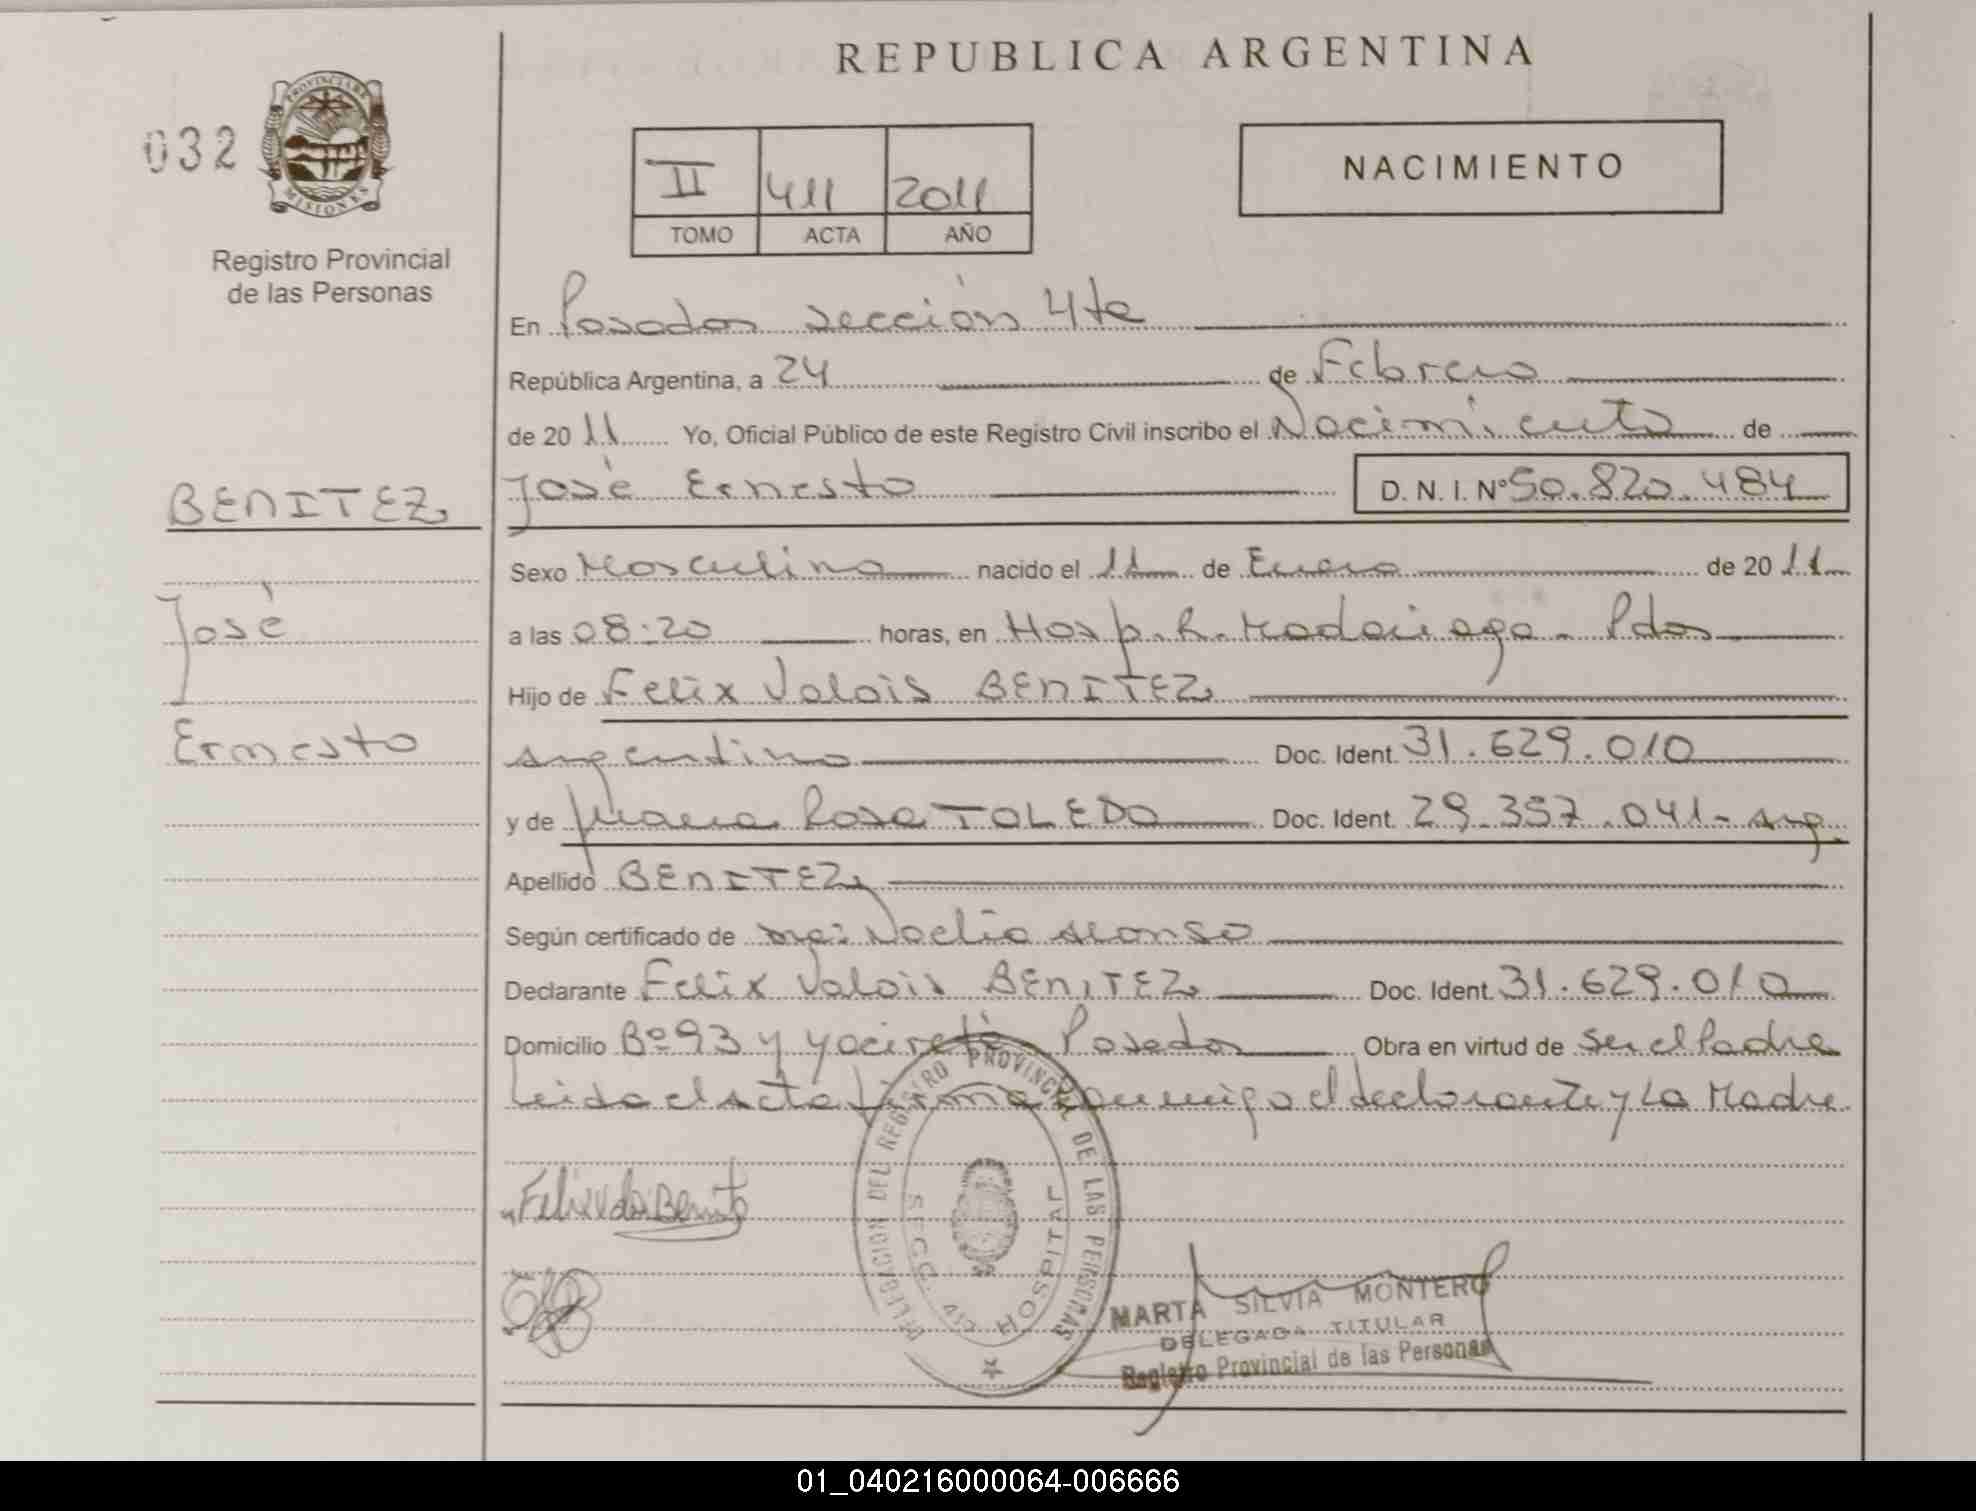 REPUBLICA ARGENTINA
032
PROVINCIA DE MISIONES
II 411 2011
TOMO ACTA AÑO
NACIMIENTO
Registro Provincial
de las Personas
En Posadas sección 4ta
República Argentina, a 24 de Febrero
de 20 11 Yo, Oficial Público de este Registro Civil inscribo el Nacimiento de
José Ernesto D. N. I. Nº 50.820.484
BENITEZ
José
Ernesto
Sexo Masculino nacido el 11 de Enero de 20 11
a las 08:20 horas, en Hosp. R. Madariaga - Pdas
Hijo de Felix Valois BENITEZ
Argentino Doc. Ident. 31.629.010
y de Juana Rosa TOLEDO Doc. Ident. 29.357.041 - Arg.
Apellido BENITEZ
Según certificado de Noelia Alonso
Declarante Felix Valois BENITEZ Doc. Ident. 31.629.010
Domicilio Bº 93 y yacireta Posadas Obra en virtud de ser el Padre
Leida el Acta firma conmigo el declarante y La Madre
DELEGACION DEL REGISTRO PROVINCIAL DE LAS PERSONAS
SECC. 4ta HOSPITAL
MARTA SILVIA MONTERO
DELEGADA TITULAR
Registro Provincial de las Personas
01_040216000064-006666